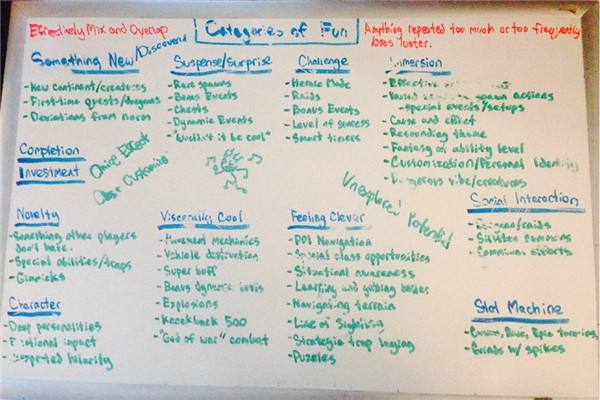 Effectively Mix and Overlap
Categories of Fun
Anything repeated too much or too frequently
loses luster.
Something New/Discovered
- New Continent/creatures
- First-time quests/dragons
- Deviations from norm
Suspense/Surprise
- Rare spawns
- Bonus Events
- Chests
- Dynamic Events
- "Wouldn't it be cool"
Challenge
- Heroic Mode
- Raids
- Bonus Events
- Level of success
- Smart timers
Immersion
- Effective
- special events/setups
- Cause and effect
- Resounding theme
- Fantasy of ability level
- Customization/Personal Identity
- Dangerous vibe/creatures
Completion
Investment
Choice Effect
Customize
Unexplored Potential
Novelty
- Something other players
don't have.
- Special abilities/traps
- Gimmicks
Viscerally Cool
- Movement mechanics
- Vehicle destruction
- Super buff
- Bonus dynamic
- Explosions
- Knockback 500
- "God of war" combat
Feeling Clever
- POI Navigation
- Special class opportunities
- Situational awareness
- Learning and gaining
- Navigating terrain
- Line of Sighting
- Strategic trap laying
- Puzzles
Social Interaction
- Communal efforts
Character
- Deep personalities
- Emotional impact
- Unexpected hilarity
Slot Machine
- Epic
- Grinds w/ spikes